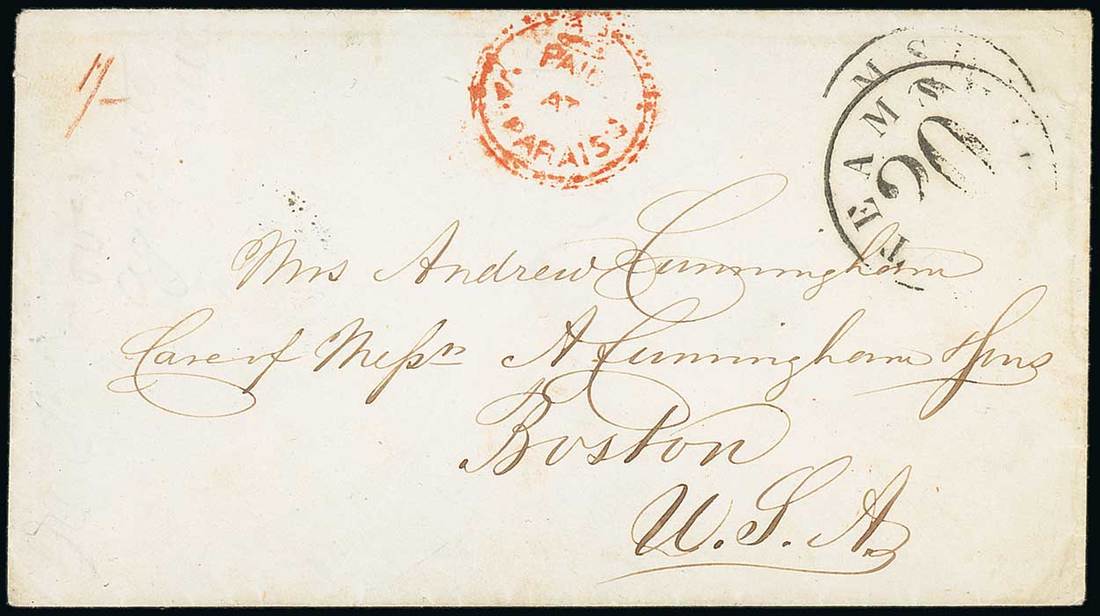 1/-
PAID
VALPARAISO
STEAMSHIP
20
Mrs Andrew Cunningham
Care of Messrs A Cunningham & Sons
Boston
U.S.A.